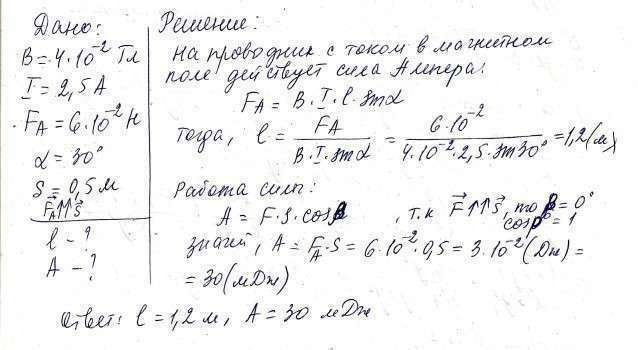 Дано:
B = 4·10⁻² Тл
I = 2,5 А
F_A = 6·10⁻² Н
α = 30°
S = 0,5 м
F⃗_A ↑↑ s⃗
l - ?
A - ?
Решение:
На проводник с током в магнитном
поле действует сила Ампера:
F_A = B·I·l·sinα
Тогда, l = F_A / (B·I·sinα) = 6·10⁻² / (4·10⁻²·2,5·sin30°) = 1,2 (м)
Работа силы:
A = F·s·cosβ, т.к F⃗↑↑s⃗, то β = 0°
cosβ = 1
значит, A = F_A·S = 6·10⁻²·0,5 = 3·10⁻² (Дж) =
= 30 (мДж)
Ответ: l = 1,2 м, A = 30 мДж